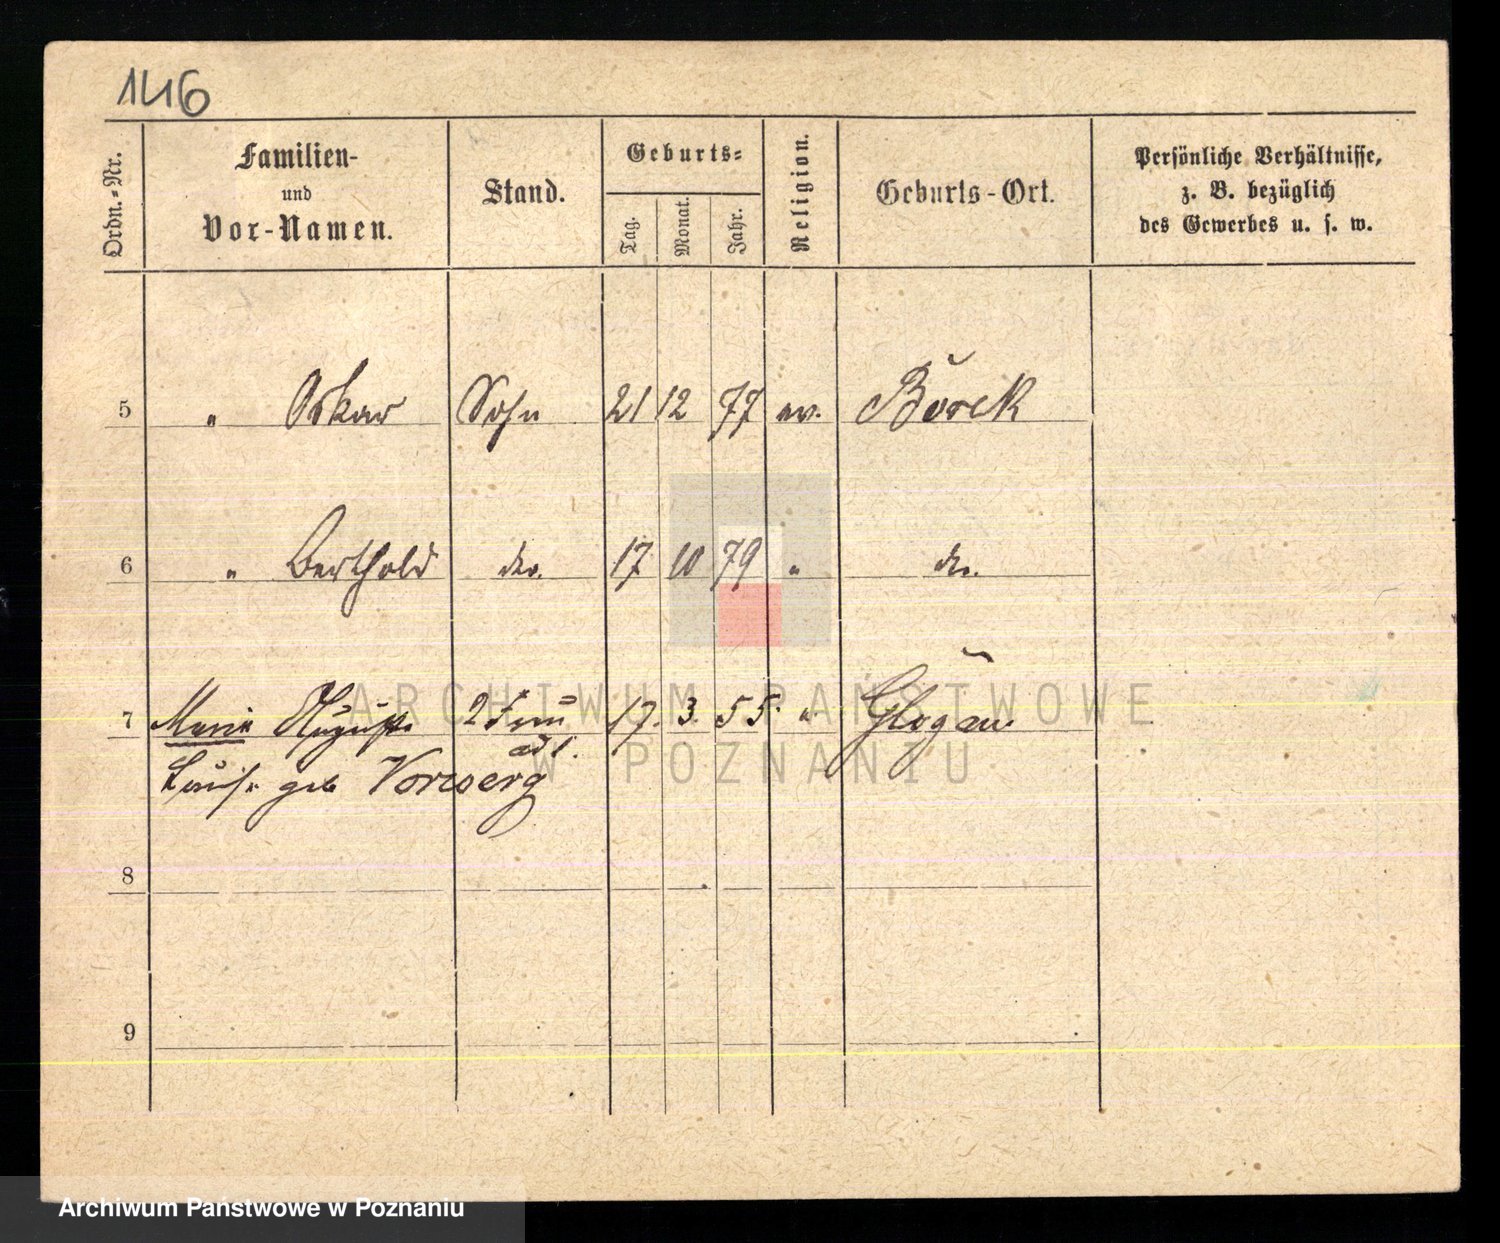 146
Ordn.-Nr.
Familien-
und
Vor-Namen.
Stand.
Geburts-
Tag.
Monat.
Jahr.
Religion.
Geburts-Ort.
Persönliche Verhältnisse,
z. B. bezüglich
des Gewerbes u. s. w.
5 " Oskar Sohn 21 12 77 ev. Borek
6 " Berthold do. 17 10 79 " do.
7 Marie Auguste 2 Frau 17. 3. 55. " Glogau
Luise geb
8
9
ARCHIWUM PAŃSTWOWE
W POZNANIU
Archiwum Państwowe w Poznaniu